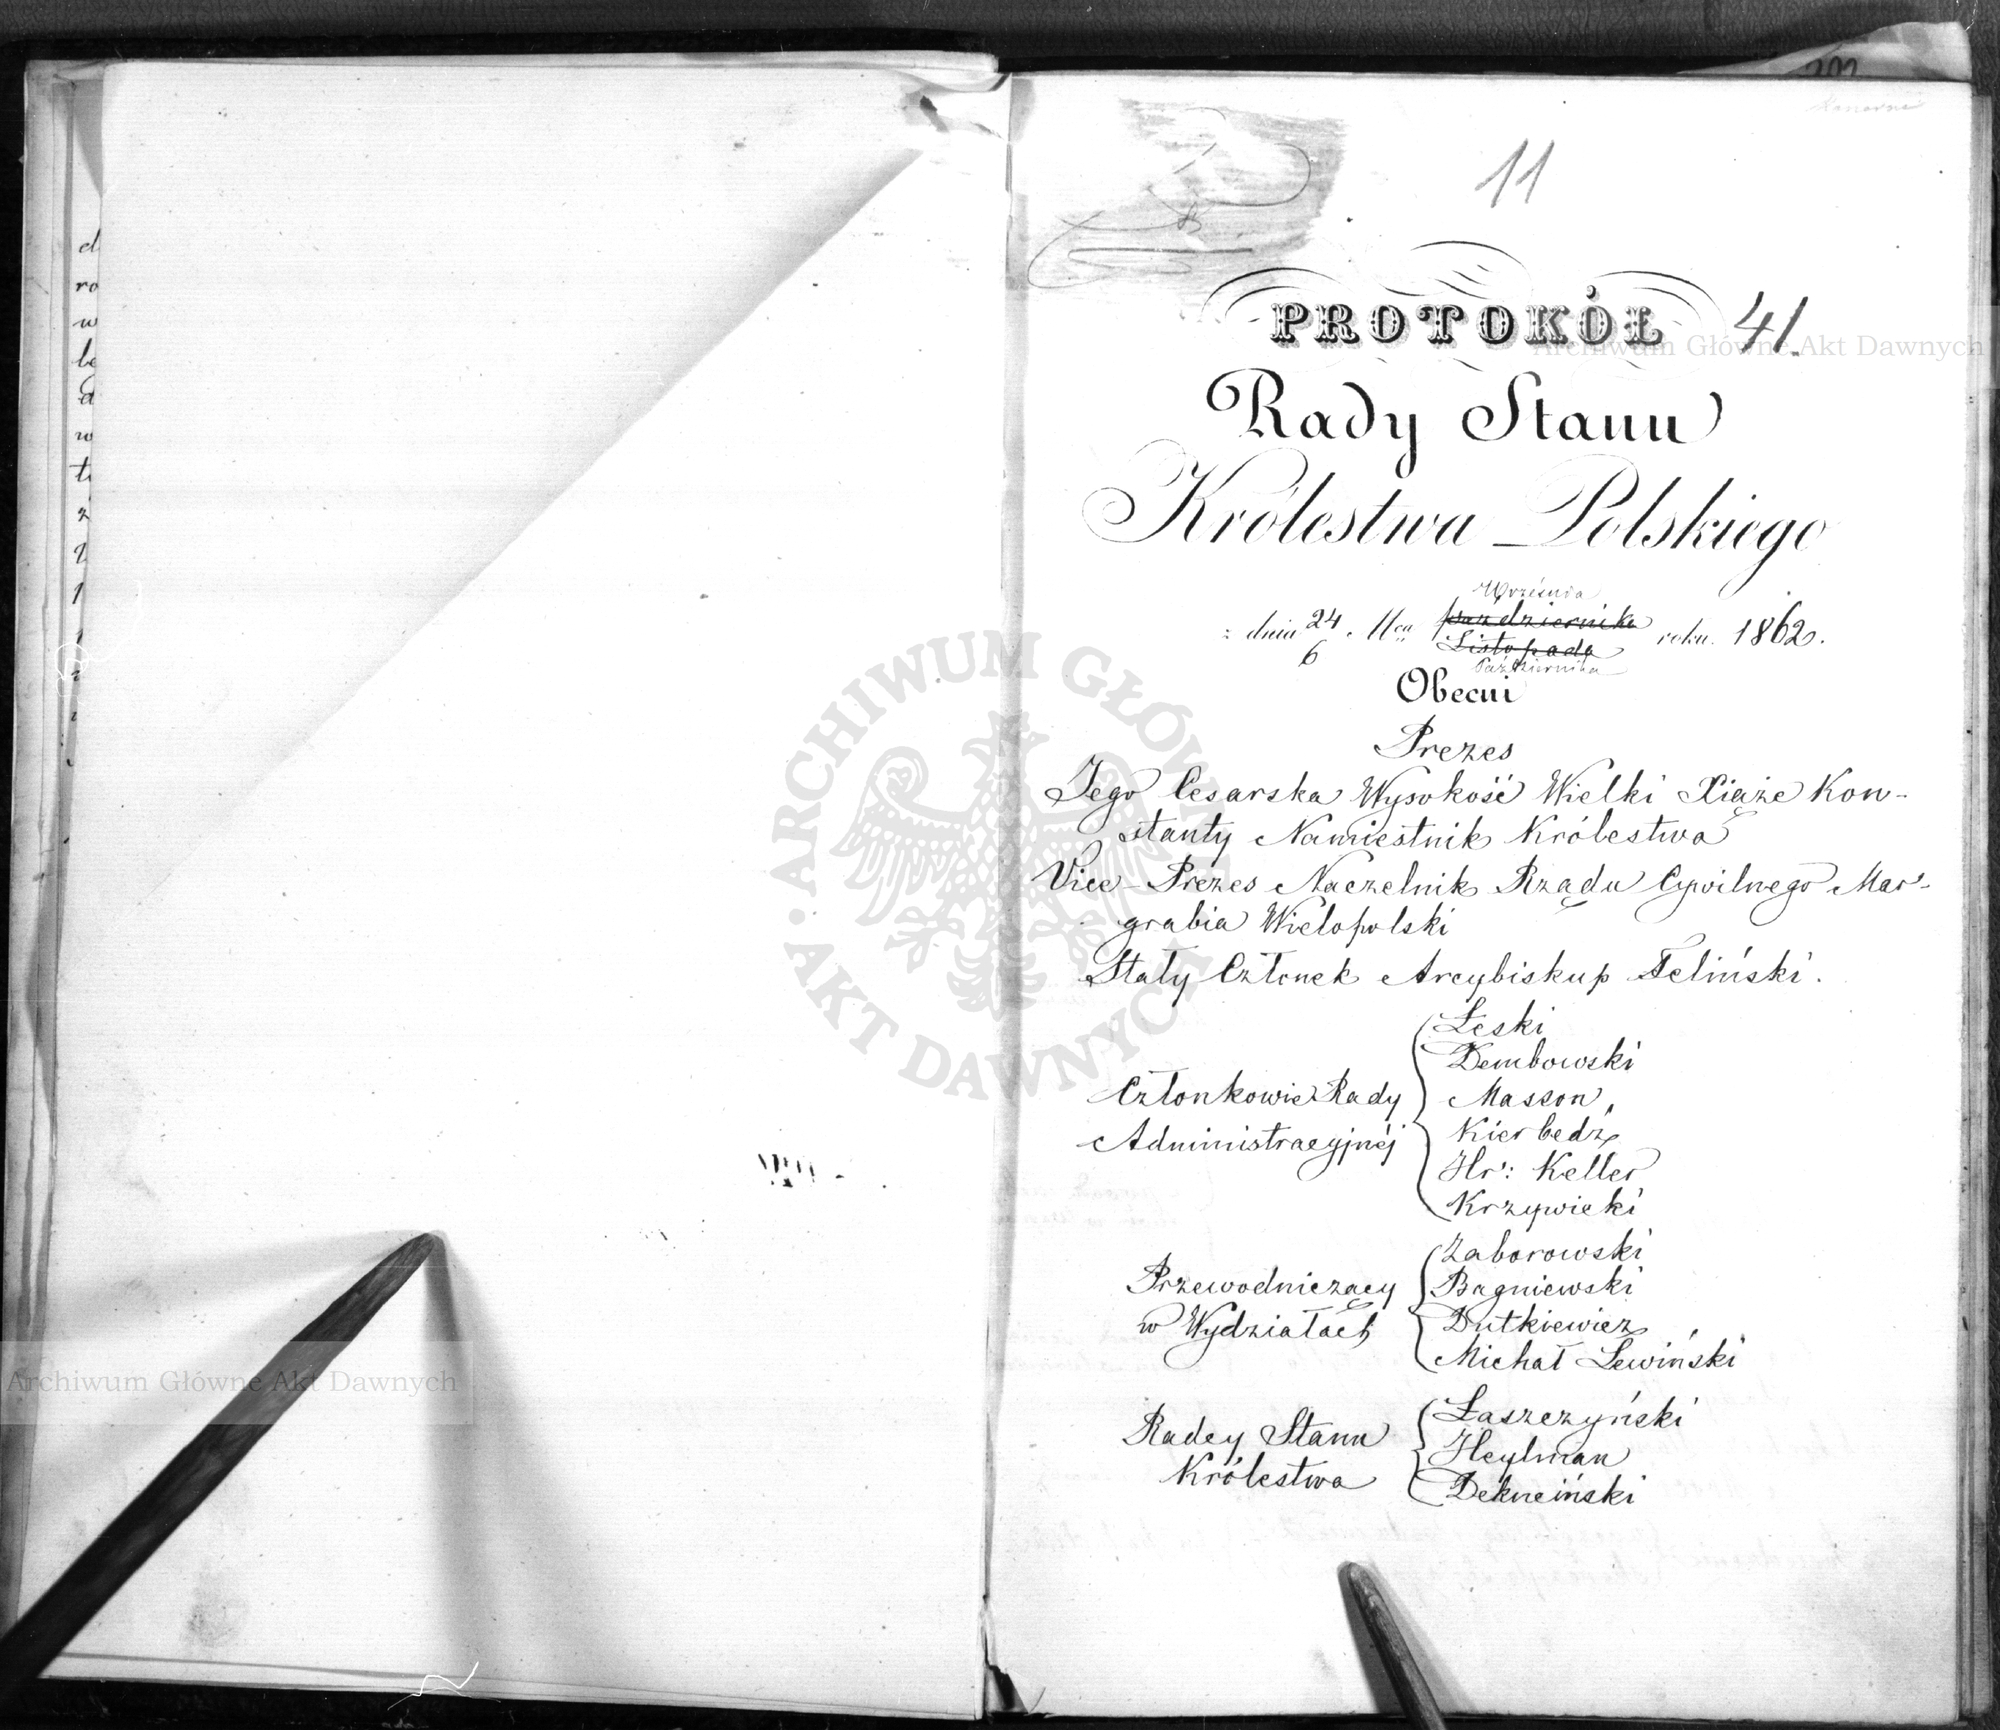 202
11
PROTOKÓŁ 41.
Rady Stanu
Królestwa Polskiego
Września
z dnia 24/6 Mca października/Listopada roku 1862.
Października
Obecni
Prezes
Jego Cesarska Wysokość Wielki Xiąże Kon-
stanty Namiestnik Królestwa
Vice-Prezes Naczelnik Rządu Cywilnego Mar-
grabia Wielopolski
Stały Członek Arcybiskup Feliński.
Członkowie Rady
Administracyjnéj
Łęski
Dembowski
Masson
Kierbedź
Hr: Keller
Krzywicki
Przewodniczący
w Wydziałach
Zaborowski
Bagniewski
Dutkiewicz
Michał Lewiński
Radcy Stanu
Królestwa
Łaszczyński
Heylman
Dekuciński
Archiwum Główne Akt Dawnych
ARCHIWUM GŁÓWNE AKT DAWNYCH
Archiwum Główne Akt Dawnych